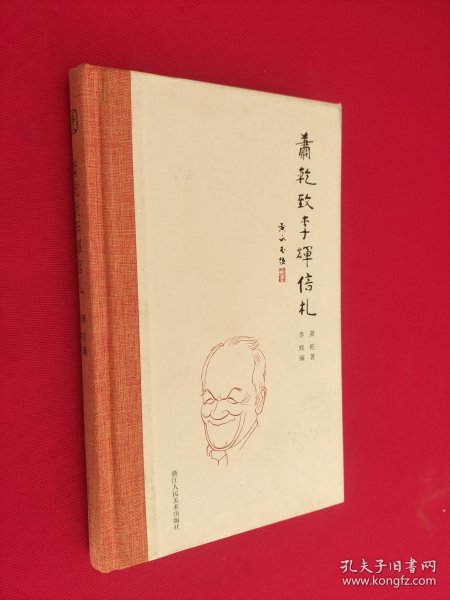 蕭乾致李輝信札
黄永玉題
萧乾著
李辉编
浙江人民美术出版社
孔夫子旧书网
www.kongfz.com